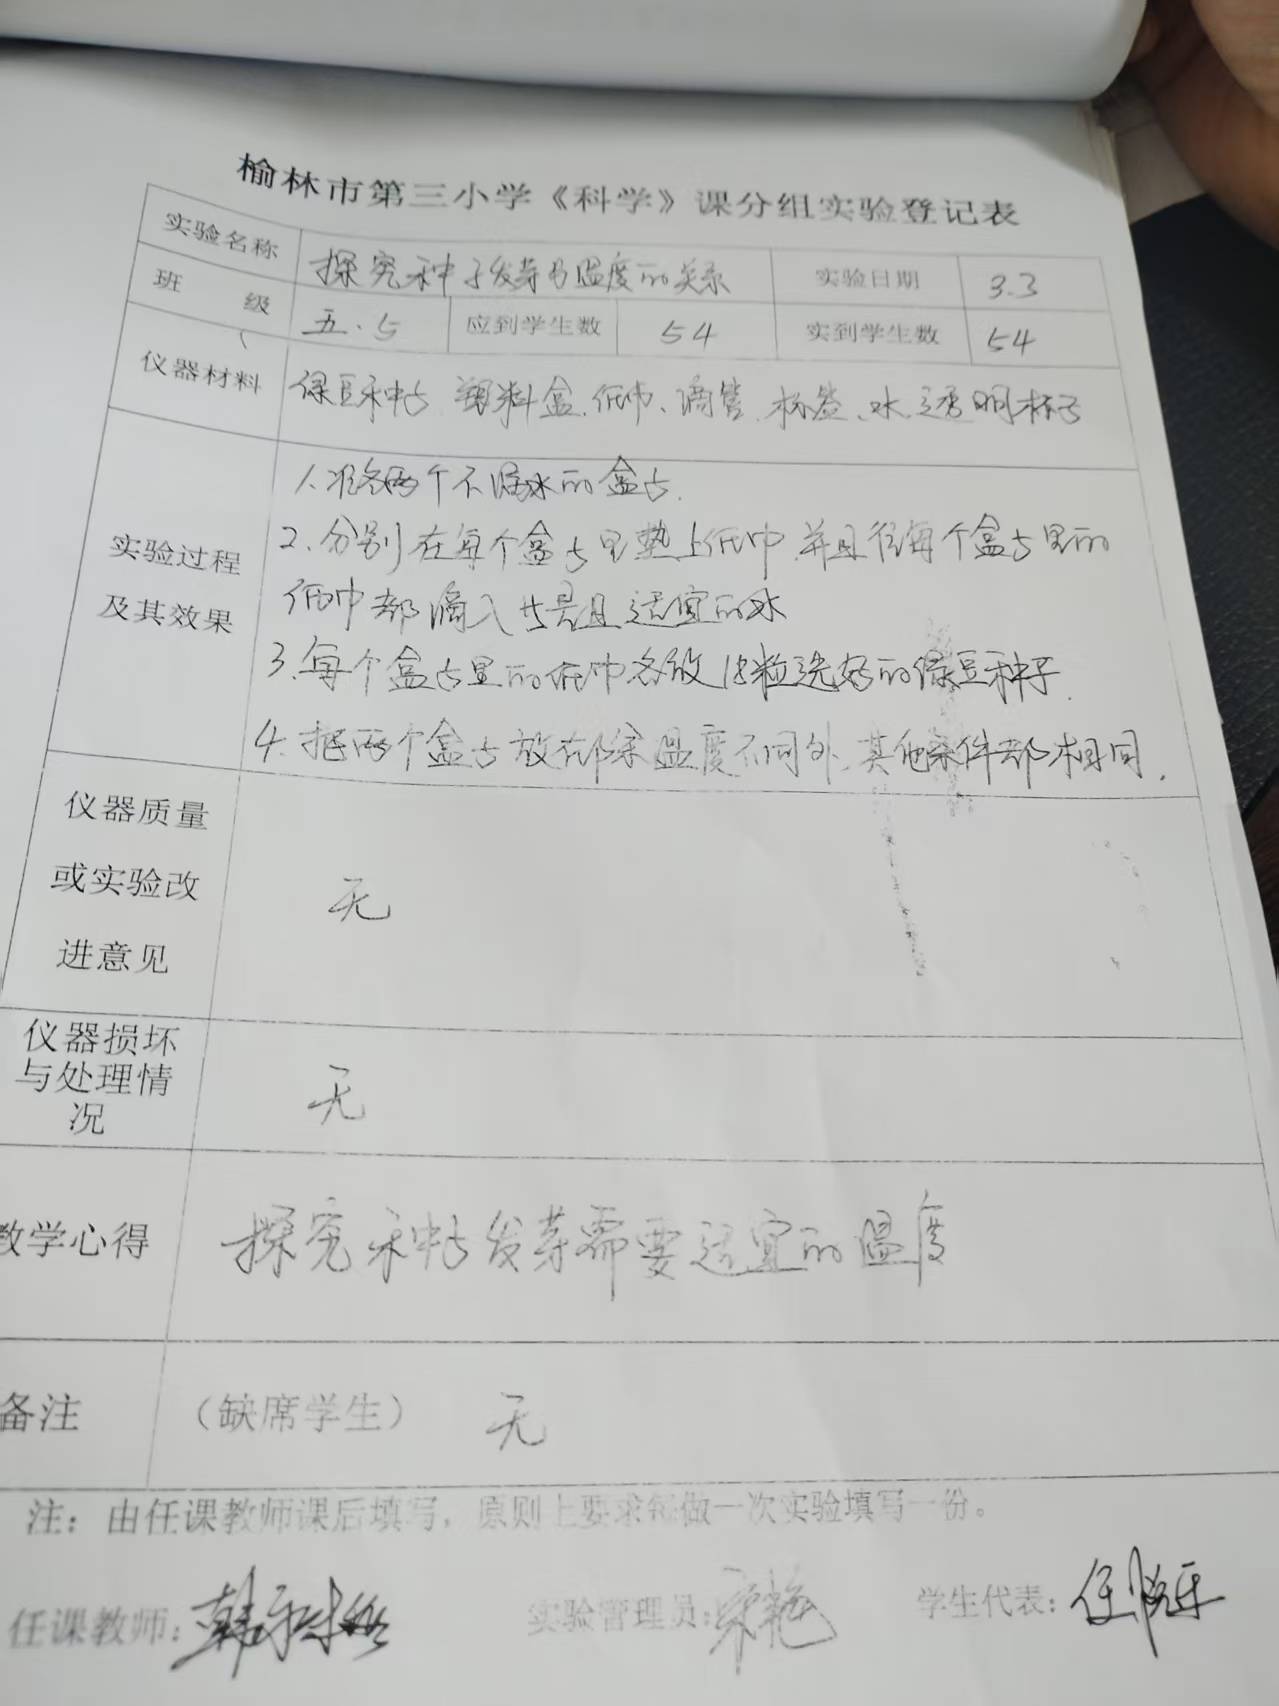 榆林市第三小学《科学》课分组实验登记表
实验名称 探究种子发芽与温度的关系 实验日期 3.3
班 级 五.5 应到学生数 54 实到学生数 54
仪器材料 绿豆种子、塑料盒、纸巾、滴管、标签、水、透明杯子
1.准备两个不漏水的盒子.
实验过程 2.分别在每个盒子里垫上纸巾并且往每个盒子里的
及其效果 纸巾都滴入 适宜的水
3.每个盒子里的纸巾各放 粒选好的绿豆种子.
4.把两个盒子放在除温度不同外,其他条件都相同.
仪器质量
或实验改 无
进意见
仪器损坏
与处理情 无
况
教学心得 探究种子发芽需要适宜的温度
备注 (缺席学生) 无
注:由任课教师课后填写,原则上要求每做一次实验填写一份。
任课教师: 实验管理员: 学生代表: